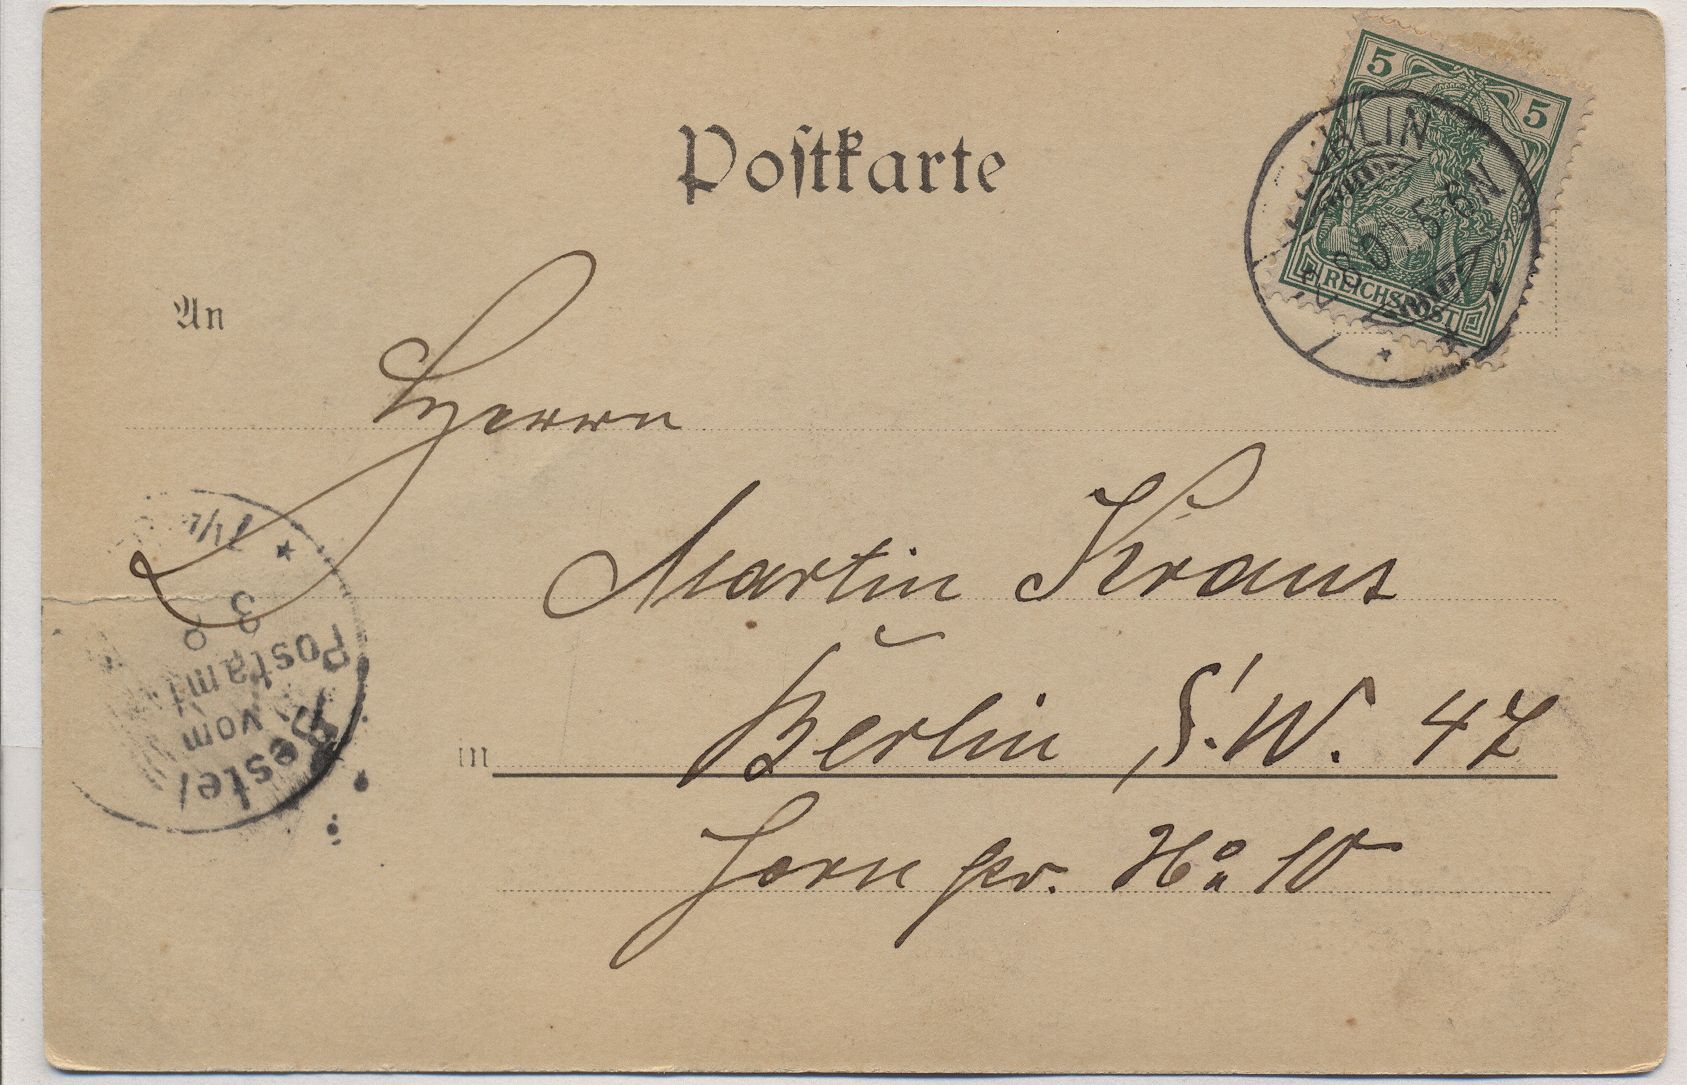 Postkarte
5 5
REICHSPOST
5-6N
An
Herrn
Martin Kraus
in Berlin S.W. 47
Hornstr. No 10
Bestellt
vom
Postamt
3 8
7½